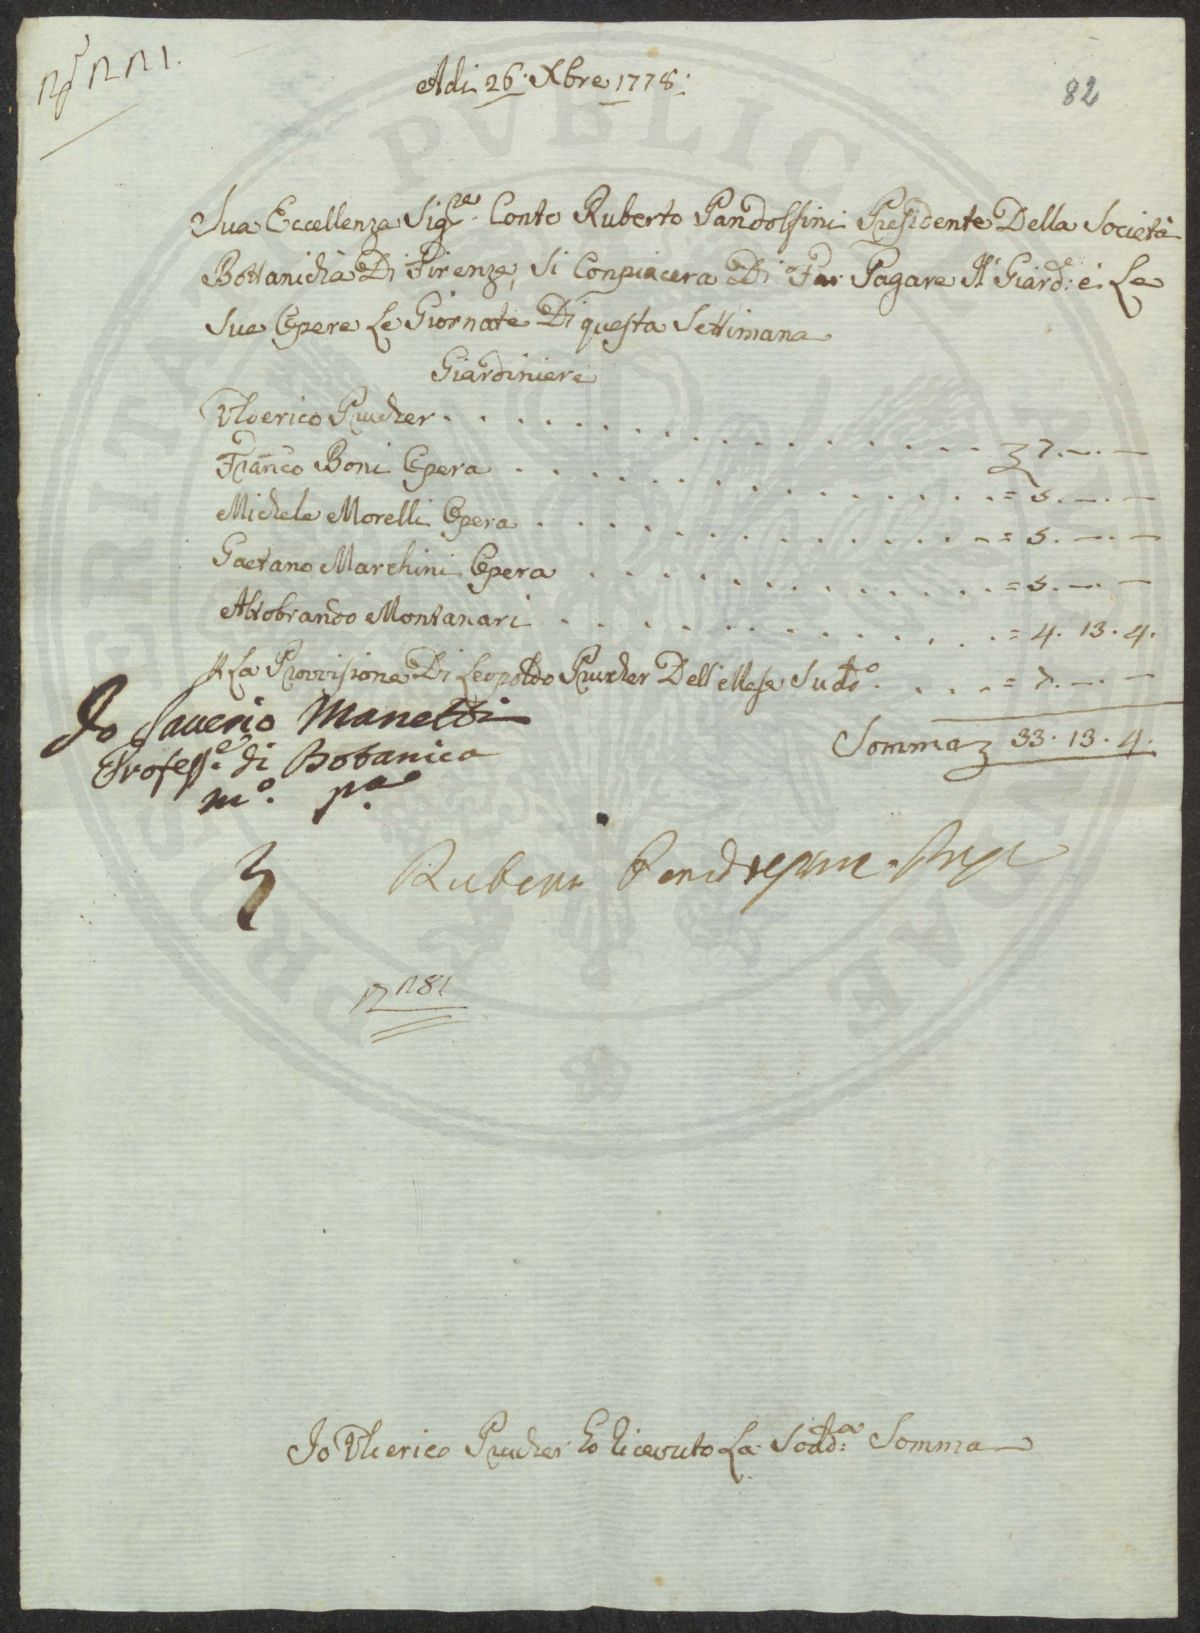 Adi 26: Xbre 1778:
82
Sua Eccellenza Sig.re Conte Ruberto Pandolfini Presidente Della Società
Bottanicha Di Firenze, Si Conpiacera Di Far Pagare Al Giard.e e Le
Sue Opere Le Giornate Di questa Settimana
Giardiniere
Ulderico Prucher . . . . . . . . . . . . . . . . 7. —. —
Franco Boni Opera . . . . . . . . . . . . . . . = 5. —. —
Michele Morelli Opera . . . . . . . . . . . . . = 5. —. —
Gaetano Marchini Opera . . . . . . . . . . . . = 5. —. —
Aldobrando Montanari . . . . . . . . . . . . . = 4. 13. 4.
P La Provisione Di Leopoldo Prucher Dell Mese Sudd.o . . . . = 7. —. —
Somma 33. 13. 4.
Io Saverio Manetti
Profess.e di Botanica
m.o p.a
Ruberto Pandolfini Presi
81
Io Ulderico Prucher ho ricevuto La Sodd.a Somma
PRVSVERITAS PVBLICAE